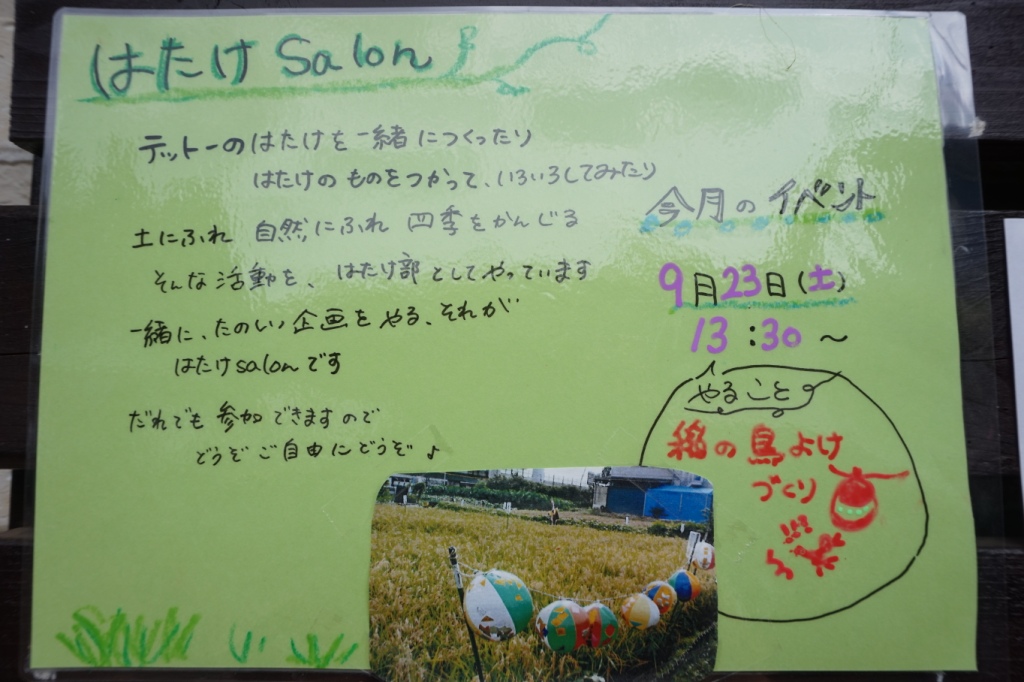 はたけ Salon
テットーのはたけを一緒につくったり
はたけのものをつかって、いろいろしてみたり
土にふれ 自然にふれ 四季をかんじる
そんな活動を、はたけ部としてやっています
一緒に、たのしい企画をやる、それが
はたけsalonです
だれでも参加できますので
どうぞご自由にどうぞ♪
今月のイベント
9月23日(土)
13:30〜
やること
の鳥よけ
づくり